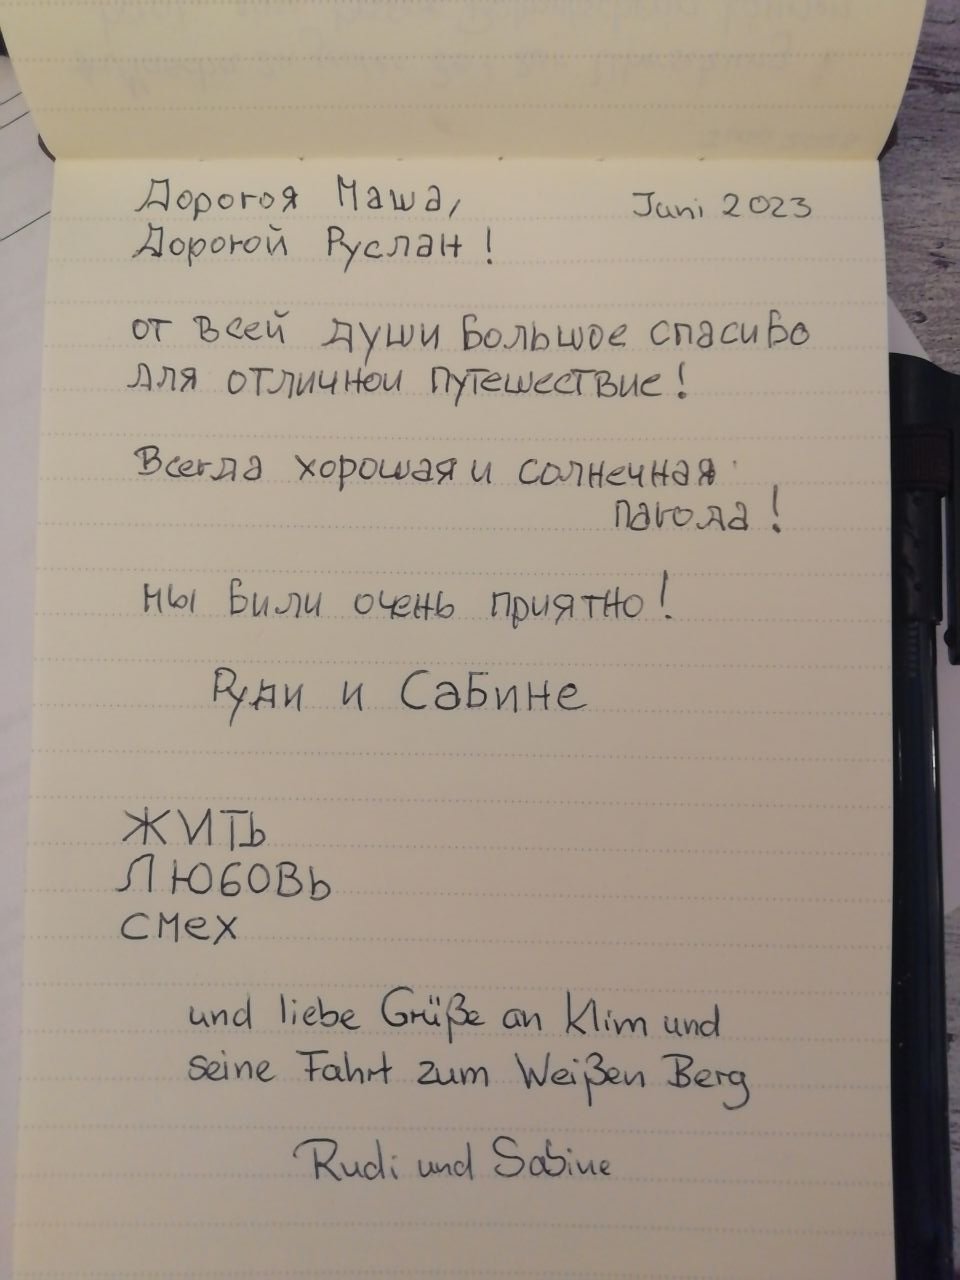 Дорогоя Маша,
Juni 2023
Дорогой Руслан!
от всей души большое спасибо
для отличной путешествие!
Всегда хорошая и солнечная
пагода!
мы били очень приятно!
Руди и Сабине
ЖИТЬ
ЛЮБОВЬ
смех
und liebe Grüße an Klim und
seine Fahrt zum Weißen Berg
Rudi und Sabine